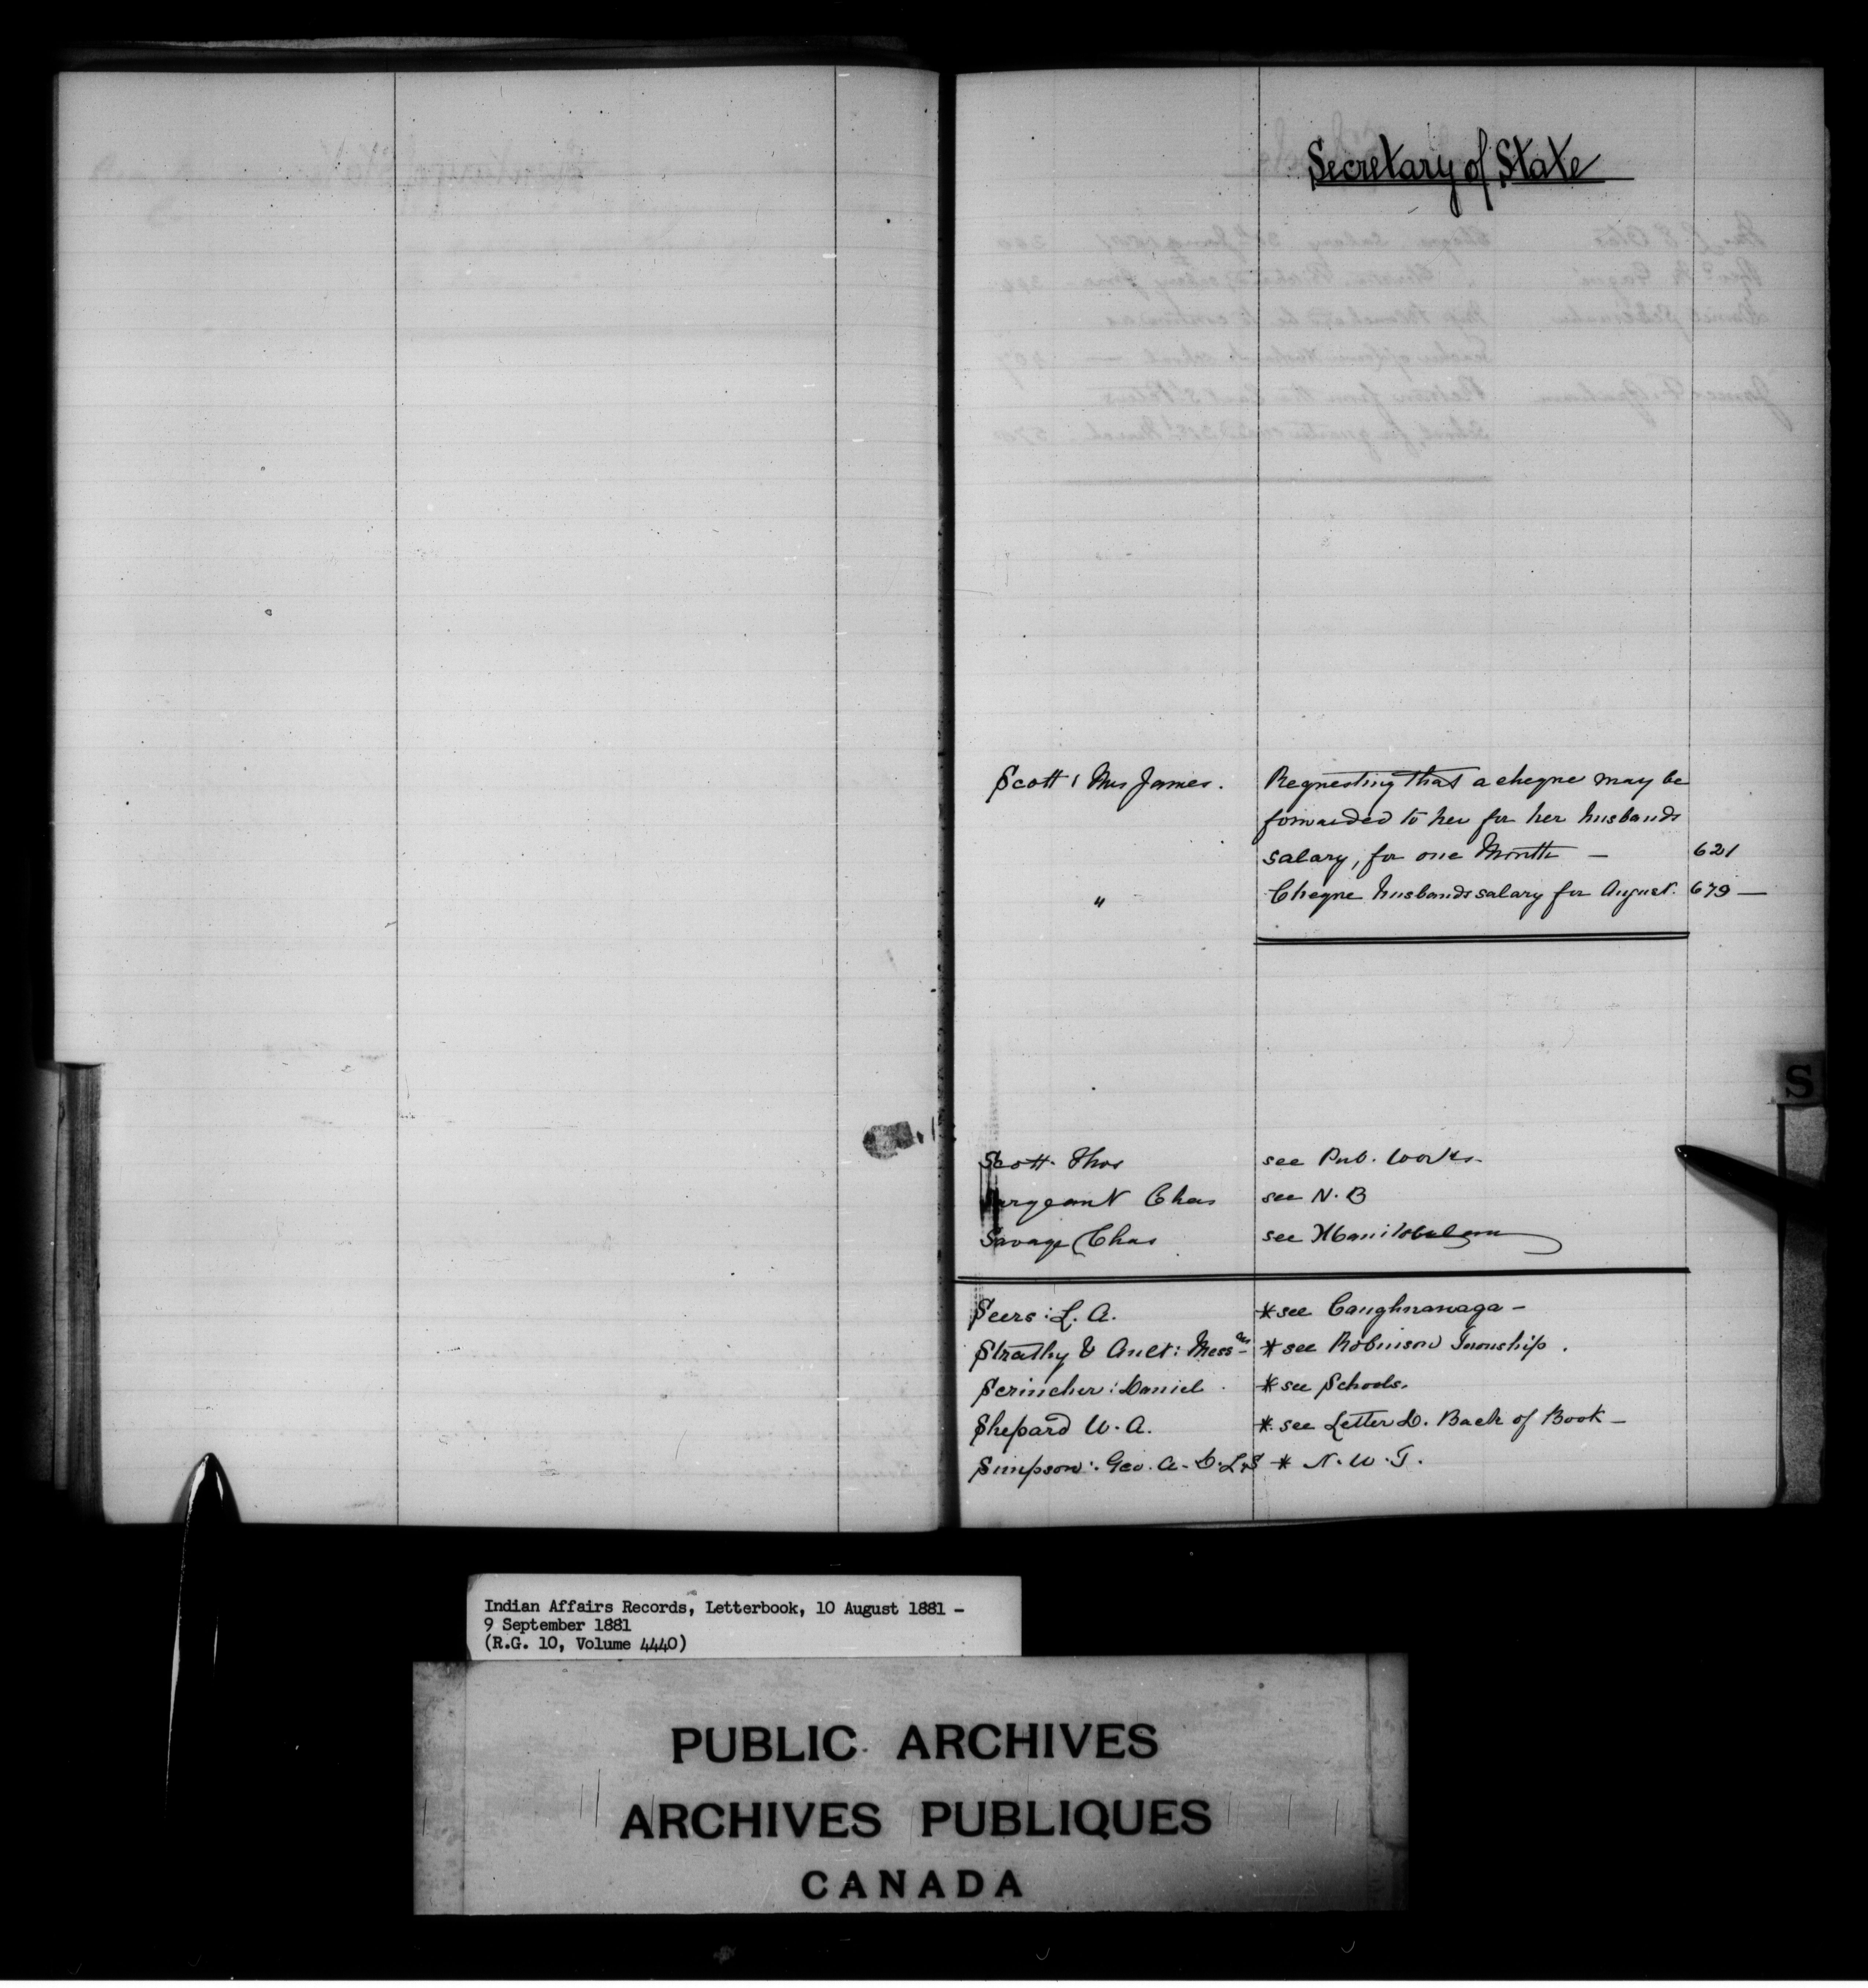 Secretary of State
Scott, Mrs James. Requesting that a cheque may be
forwarded to her for her husbands
salary, for one Month — 621
" Cheque husbands salary for August. 679 —
S
Scott Thos see Pub. Works.
Sargeant Chas see N. B
Savage Chas see
Seers: L. A. * see Caughnawaga —
Strathy & Ault: Messrs * see Robinson Township.
Scrincher: Daniel. * see Schools.
Shepard W. A. * see Letter D. Back of Book —
Simpson: Geo. A. D.L.S * N. W. T.
Indian Affairs Records, Letterbook, 10 August 1881 -
9 September 1881
(R.G. 10, Volume 4440)
PUBLIC ARCHIVES
ARCHIVES PUBLIQUES
CANADA